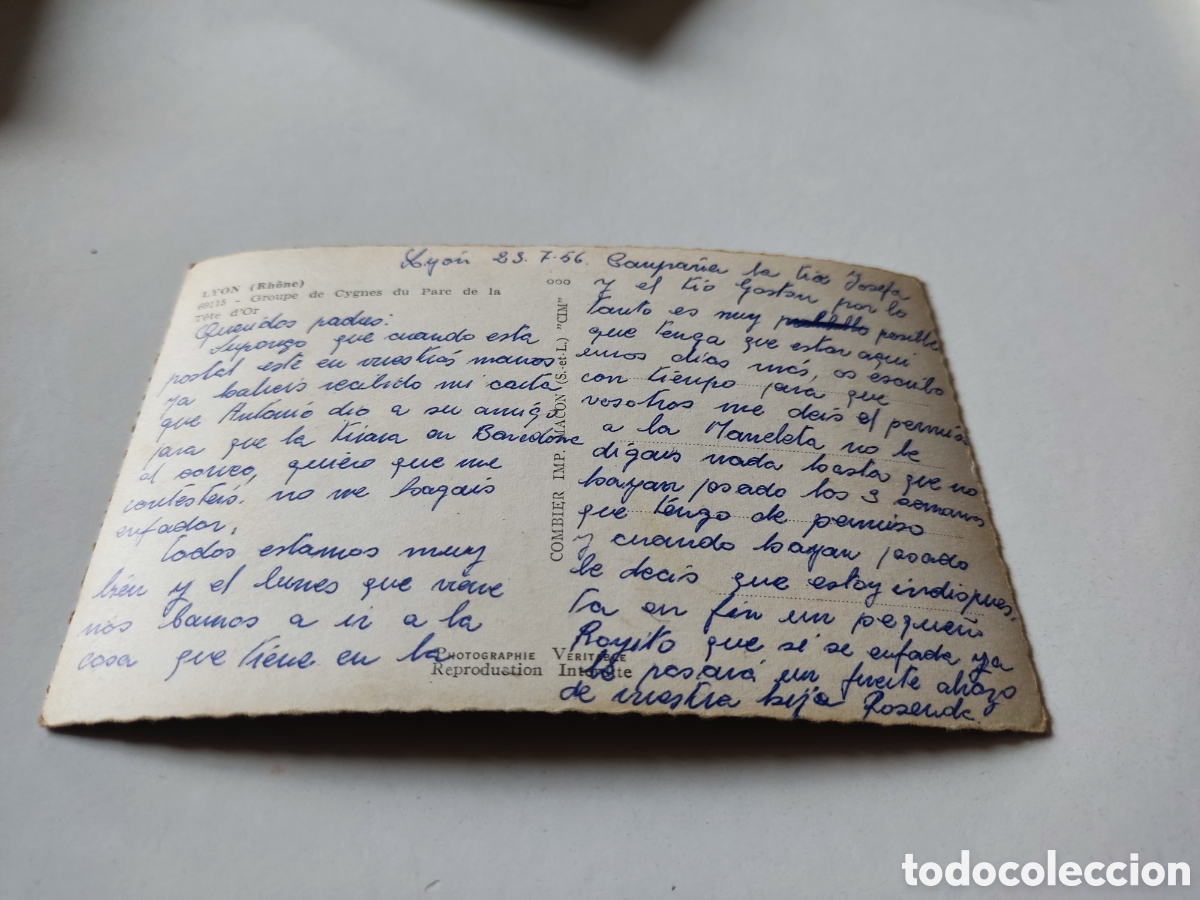 Lyón 23.7.56.
LYON (Rhône)
69115 - Groupe de Cygnes du Parc de la
Tête d'Or
Queridos padres:
Supongo que cuando esta
postal esté en vuestras manos
ya habeis recibido mi carta
que Antonio dio a su amigo
para que la tirara en Barcelone
al correo, quiero que me
contesteis. no me hagais
enfadar,
Todos estamos muy
bien y el lunes que viene
nos bamos a ir a la
casa que tiene en la
COMBIER IMP. MACON (S.-et-L.) "CIM"
PHOTOGRAPHIE VÉRITABLE
Reproduction Interdite
Campaña la tia Josefa
y el tio Gaston por lo
tanto es muy posible
que tenga que estar aqui
unos dias más, os escribo
con tiempo para que
vosotros me deis el permiso
a la Maneleta no le
digais nada hasta que no
hayan pasado las 3 semanas
que tengo de permiso
y cuando hayan pasado
le decis que estoy indispues.
ta en fin un pequeño
Royito que si se enfada ya
le pasará un fuerte abrazo
de vuestra hija Rosende.
todocoleccion